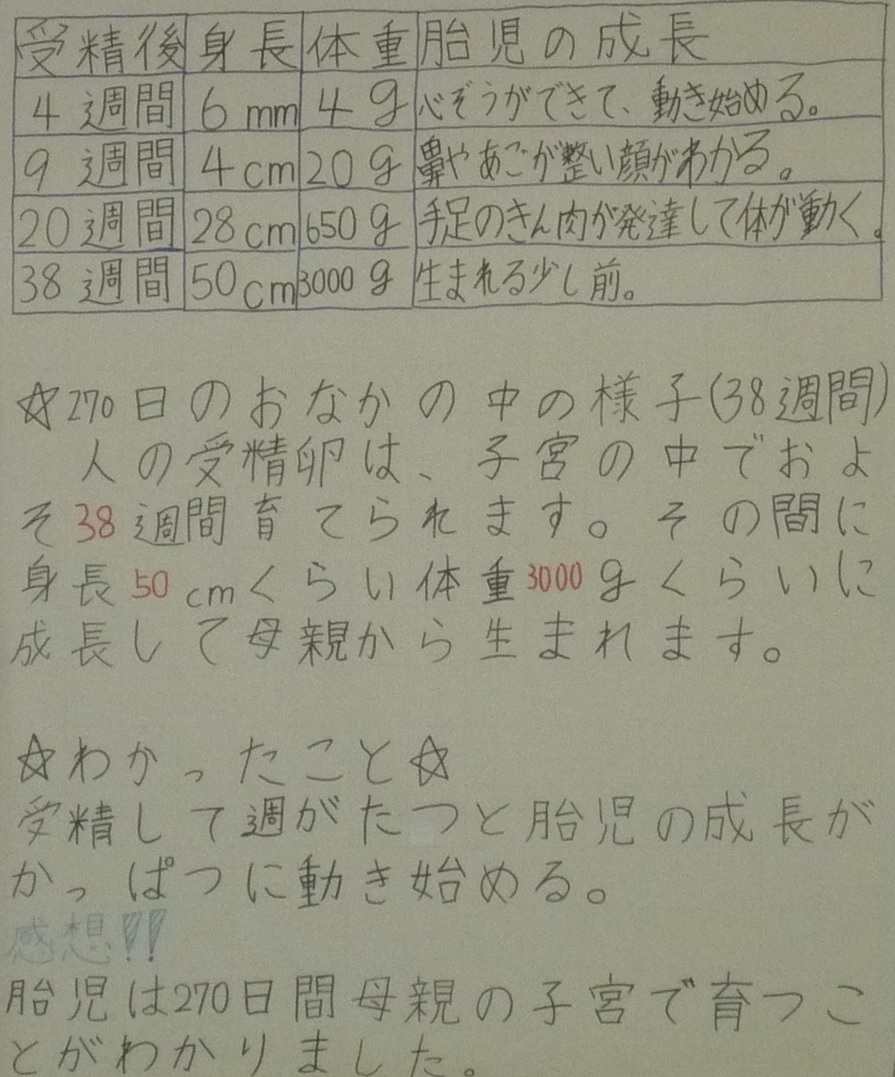 受精後 身長 体重 胎児の成長
4週間 6mm 4g 心ぞうができて、動き始める。
9週間 4cm 20g 鼻やあごが整い顔がわかる。
20週間 28cm 650g 手足のきん肉が発達して体が動く。
38週間 50cm 3000g 生まれる少し前。
☆270日のおなかの中の様子(38週間)
人の受精卵は、子宮の中でおよ
そ38週間育てられます。その間に
身長50cmくらい体重3000gくらいに
成長して母親から生まれます。
☆わかったこと☆
受精して週がたつと胎児の成長が
かっぱつに動き始める。
感想!!
胎児は270日間母親の子宮で育つこ
とがわかりました。